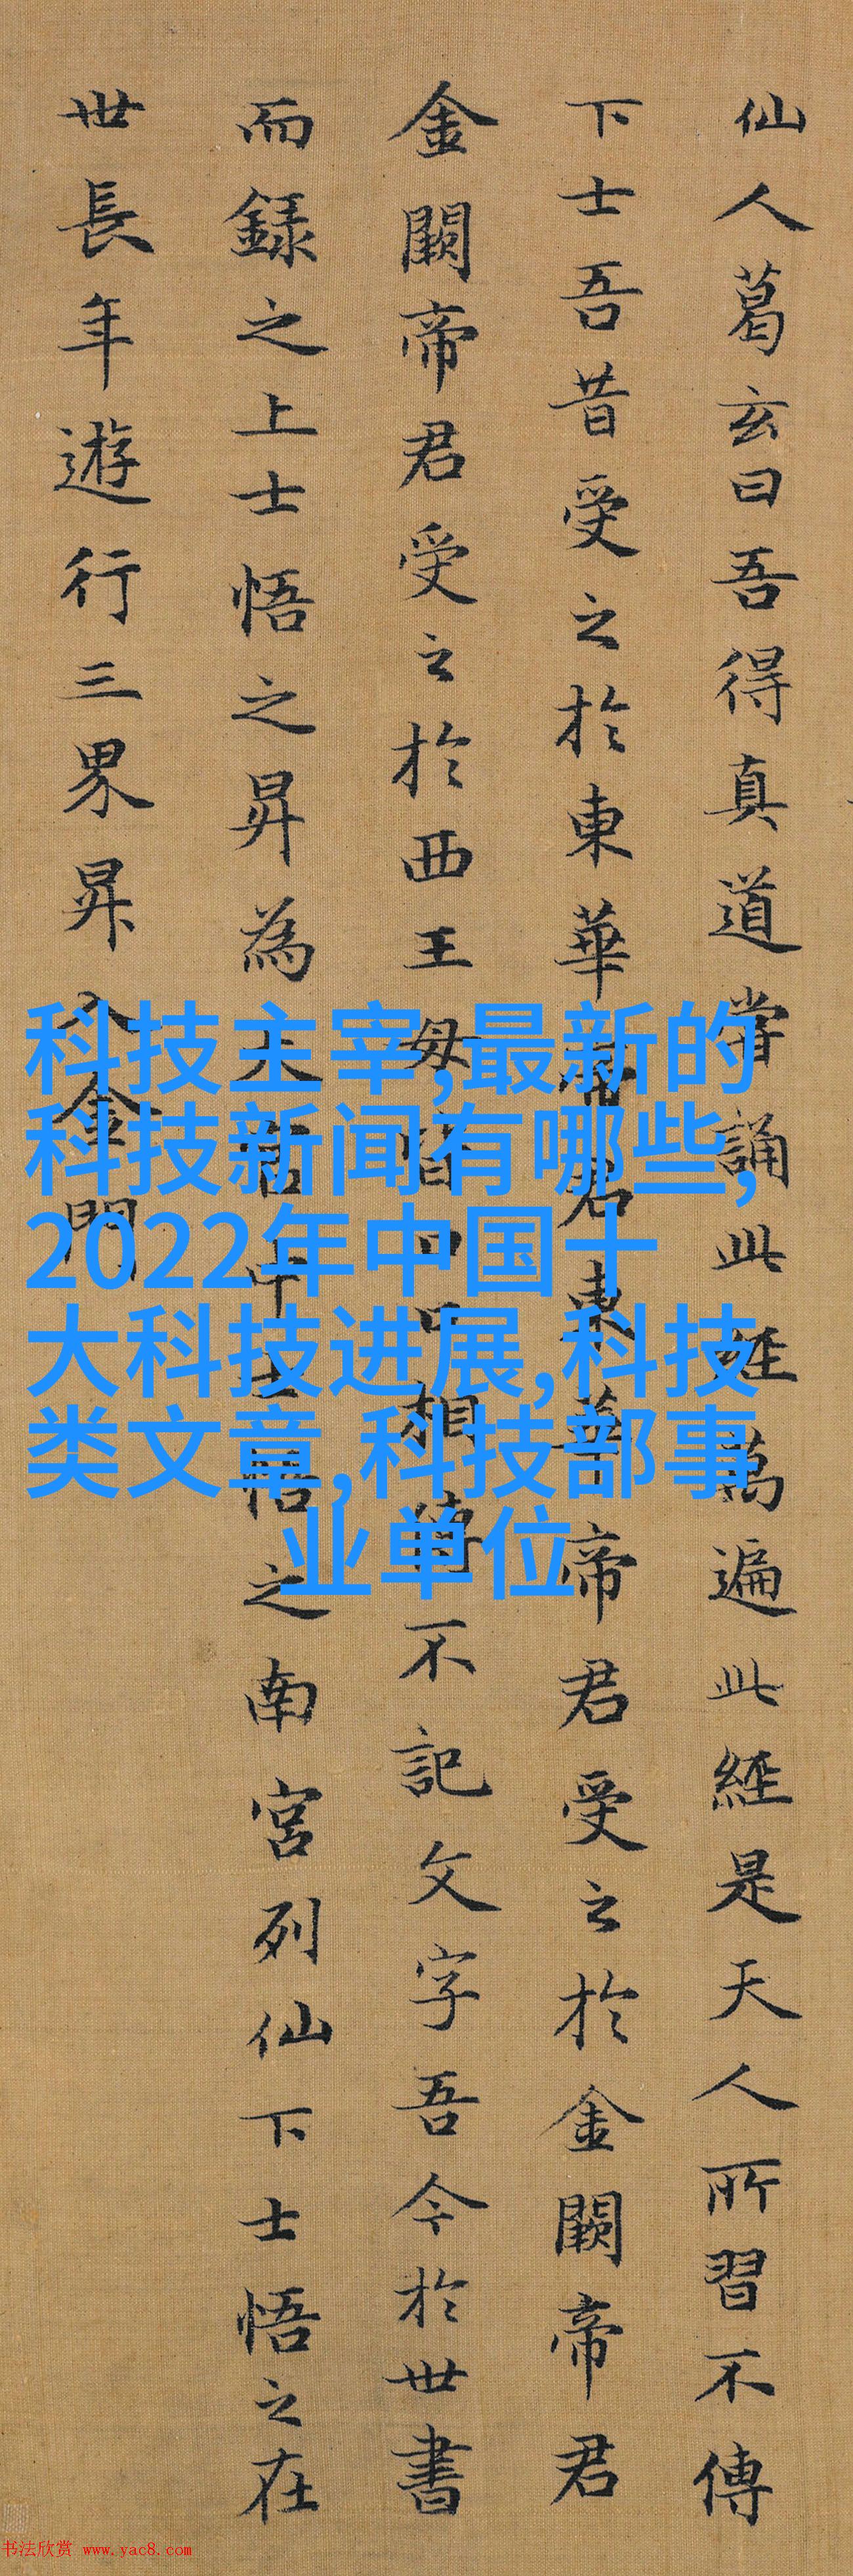 仙人葛玄曰吾得真道嘗誦此經萬遍此經是天人所習不傳
下士吾昔受之於東華帝君東華帝君受之於金闕帝君
金闕帝君受之於西王母皆口口相傳不記文字吾今於世書
而録之上士悟之昇為天官中士悟之南宮列仙下士悟之在
世長年遊行三界昇入金門
科技主宰,最新的
科技新闻有哪些,
2022年中国十
大科技进展,科技
类文章,科技部事
业单位
书法欣赏 www.yac8.com